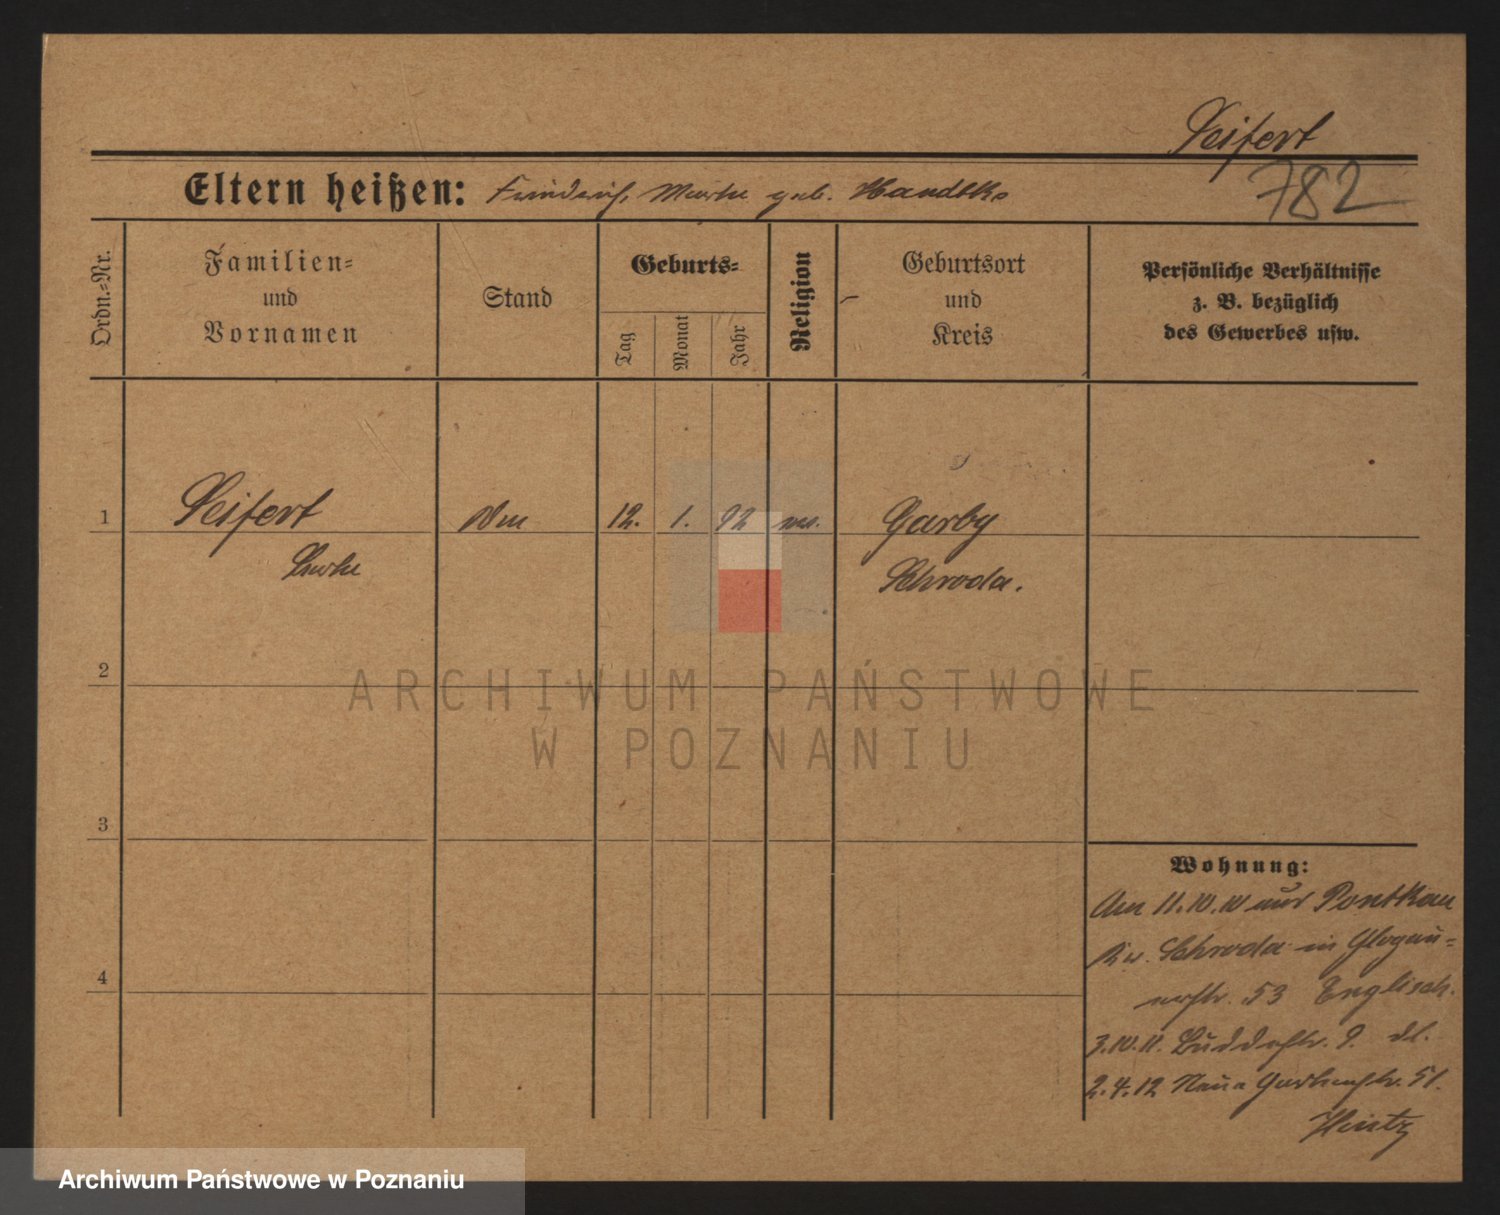 Seifert
782
Eltern heißen: geb. Handtke
Ordn.-Nr.
Familien-
und
Vornamen
Stand
Geburts-
Tag
Monat
Jahr
Religion
Geburtsort
und
Kreis
Persönliche Verhältnisse
z. B. bezüglich
des Gewerbes usw.
1
Seifert
12. 1. 92
Garby
Schroda.
2
3
4
Wohnung:
Am 11.10.10 aus
Schroda in Glogau-
erstr. 53 Englisch.
3.10.11. Buddestr. 9.
2.4.12 Neue Gartenstr. 51.
Hintz
ARCHIWUM PAŃSTWOWE
W POZNANIU
Archiwum Państwowe w Poznaniu